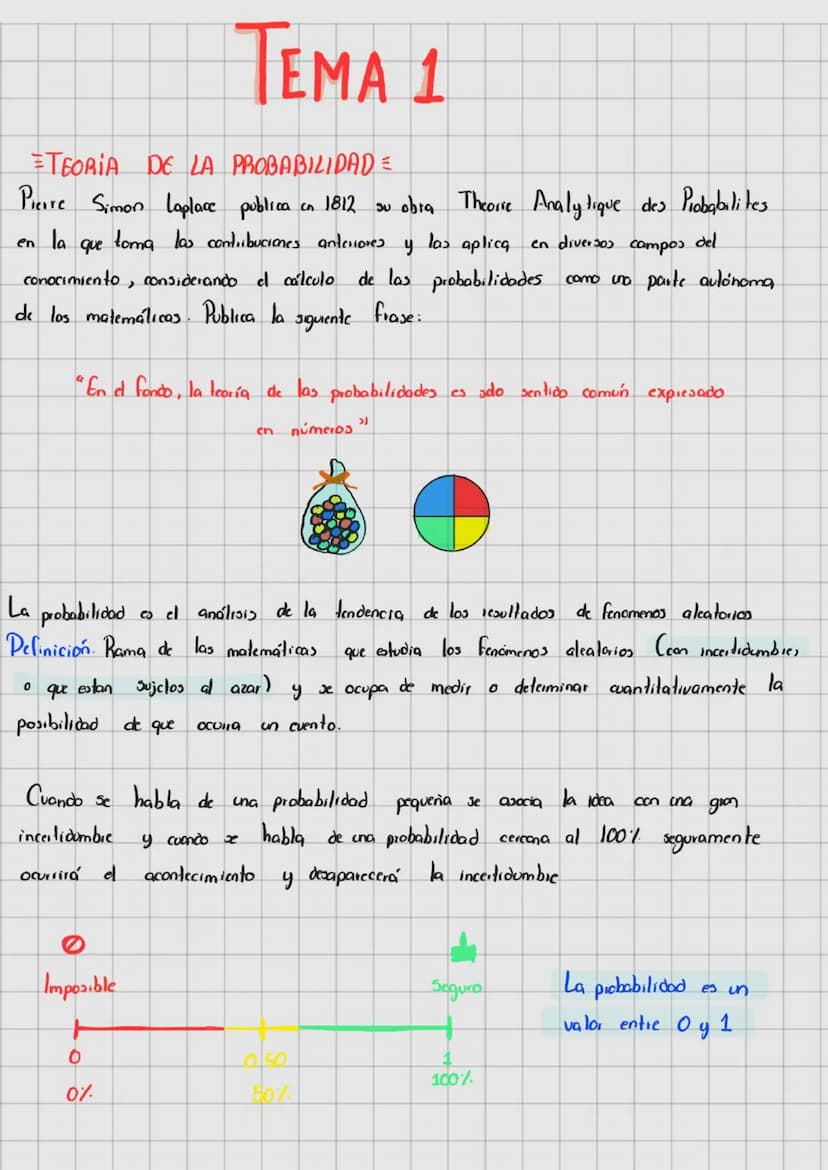 TEMA 1
TEORÍA DE LA PROBABILIDAD
Pierre Simon Laplace publica en 1812 su obra Theorie Analytique des Probabilites
en la que toma las contribuciones anteriores y las aplica en diversos campos del
conocimiento, considerando el cálculo de las probabilidades como una parte autónoma
de las matemáticas. Publica la siguiente frase:
"En el fondo, la teoría de las probabilidades es solo sentido común expresado
en números"
La probabilidad es el análisis de la tendencia de los resultados de fenomenos aleatorios
Definición. Rama de las matemáticas que estudia los fenómenos aleatorios (con incertidumbre,
o que estan sujetos al azar) y se ocupa de medir o determinar cuantitativamente la
posibilidad de que ocurra un evento.
Cuando se habla de una probabilidad pequeña se asocia la idea con una gran
incertidumbre y cuando se habla de una probabilidad cercana al 100% seguramente
ocurrirá el acontecimiento y desaparecerá la incertidumbre
Imposible
Seguro
La probabilidad es un
valor entre 0 y 1
0
0.50
1
0%
50%
100%